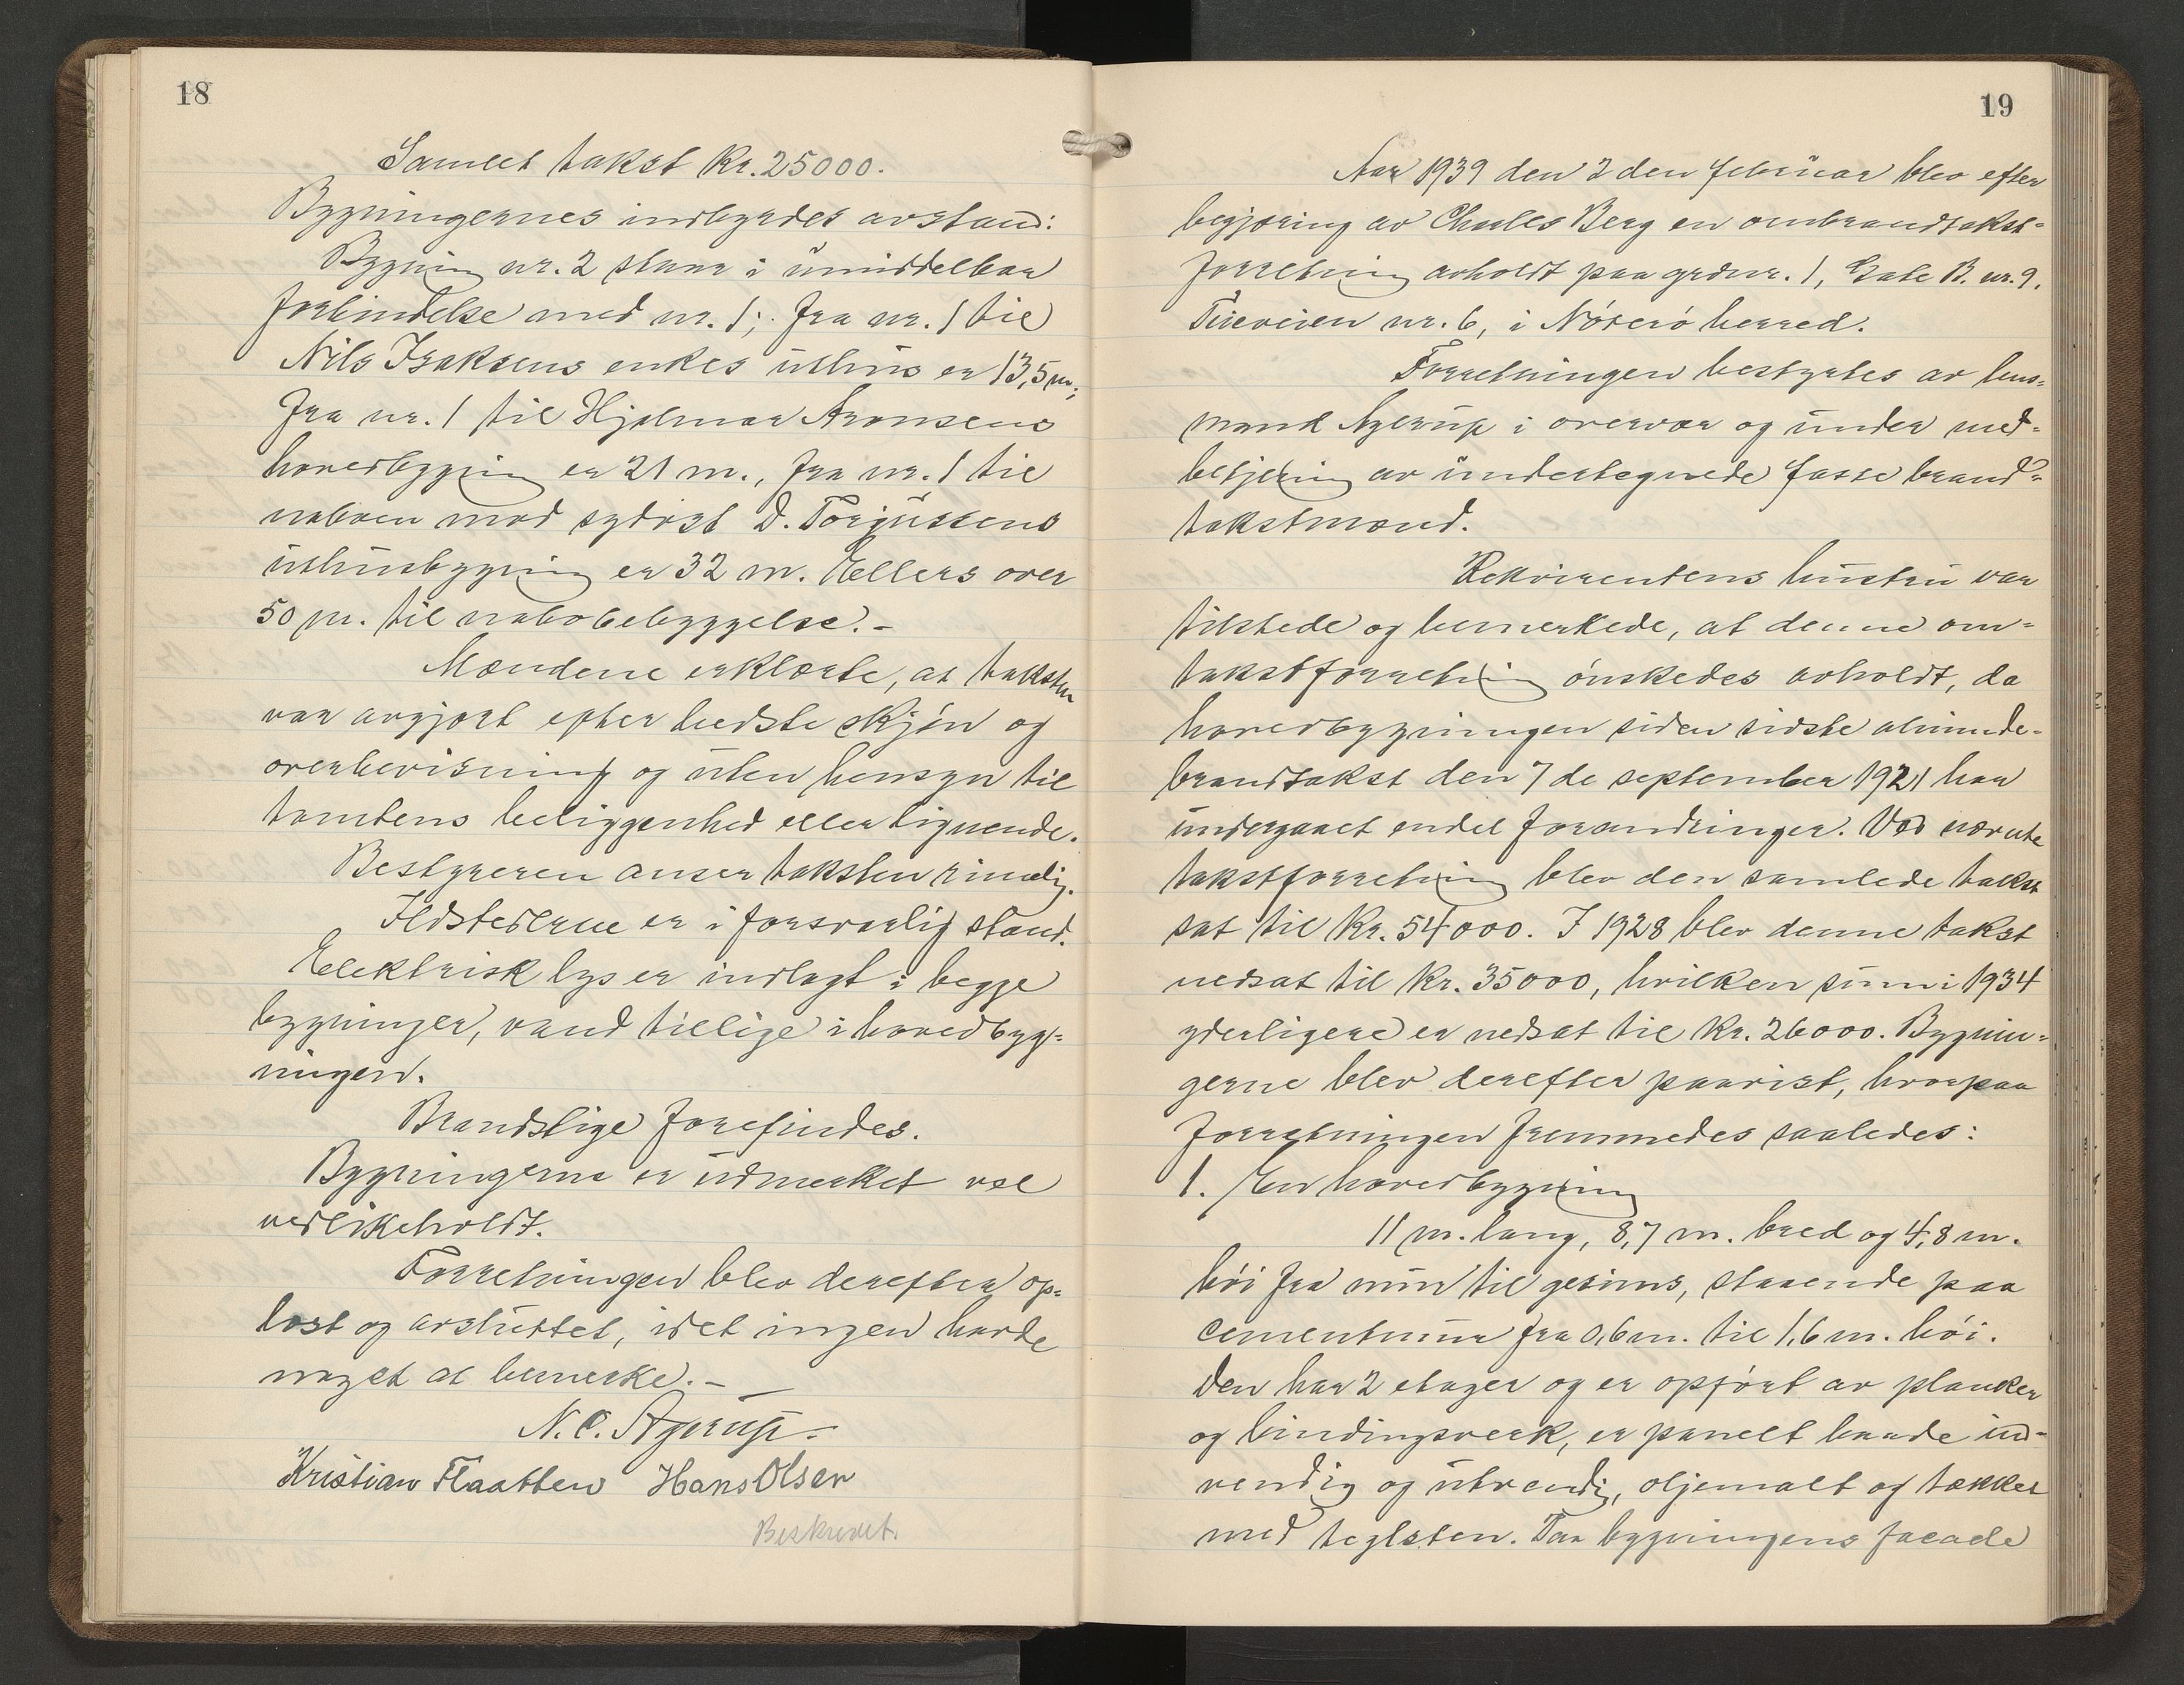 18
Samlet takst Kr. 25000.
Bygningernes indbyrdes avstand:
Bygning nr. 2 staar i umiddelbar
forbindelse med nr. 1; fra nr. 1 til
Nils Isaksens enkes uthus er 13,5 m;
fra nr. 1 til Hjalmar Aronsens
hovedbygning er 21 m., fra nr. 1 til
naboen mod sydost D. Torjussens
uthusbygning er 32 m. Ellers over
50 m. til nabobebyggelse. -
Mændene erklærte, at taksten
var avgjort efter bedste skjøn og
overbevisning og uten hensyn til
tomtens beliggenhed eller lignende.
Bestyreren anser taksten rimelig.
Ildstederne er i forsvarlig stand.
Elektrisk lys er indlagt i begge
bygninger, vand tillige i hovedbyg=
ningen.
Brandstige forefindes.
Bygningerne er utmerket vel
vedlikeholdt.
Forretningen blev derefter op=
læst og avsluttet, idet ingen havde
noget at bemerke. -
N. C. Agerup.
Kristian Flaatten Hans Olsen
Beskrevet.
19
Aar 1939 den 2den februar blev efter
begjæring av Charles Berg en ombrandtakst=
forretning avholdt paa grdnr. 1, Gate B. nr. 9.
nr. 6, i Nøterø herred.
Forretningen bestyrtes av lens=
mand Agerup i overvær og under med=
betjening av undertegnede faste brand=
takstmænd.
Rekvirentens hustru var
tilstede og bemerkede, at denne om=
takstforretning ønskedes avholdt, da
hovedbygningen siden sidste alminde-
brandtakst den 7de september 1921 har
undergaaet endel forandringer. Ved nævnte
takstforretning blev den samlede takst
sat til Kr. 54000. I 1928 blev denne takst
nedsat til Kr. 35000, hvilken sum i 1934
yderligere er nedsat til Kr. 26000. Bygnin=
gerne blev derefter paavist, hvorpaa
forretningen fremmedes saaledes:
1. En hovedbygning
11 m. lang, 8,7 m. bred og 4,8 m.
høi fra mur til gesims, staaende paa
cementmur fra 0,6 m. til 1,6 m. høi.
Den har 2 etager og er opført av planker
og bindingsverk, er panelt baade ind-
vendig og utvendig, oljemalt og tækket
med teglsten. Paa bygningens facade